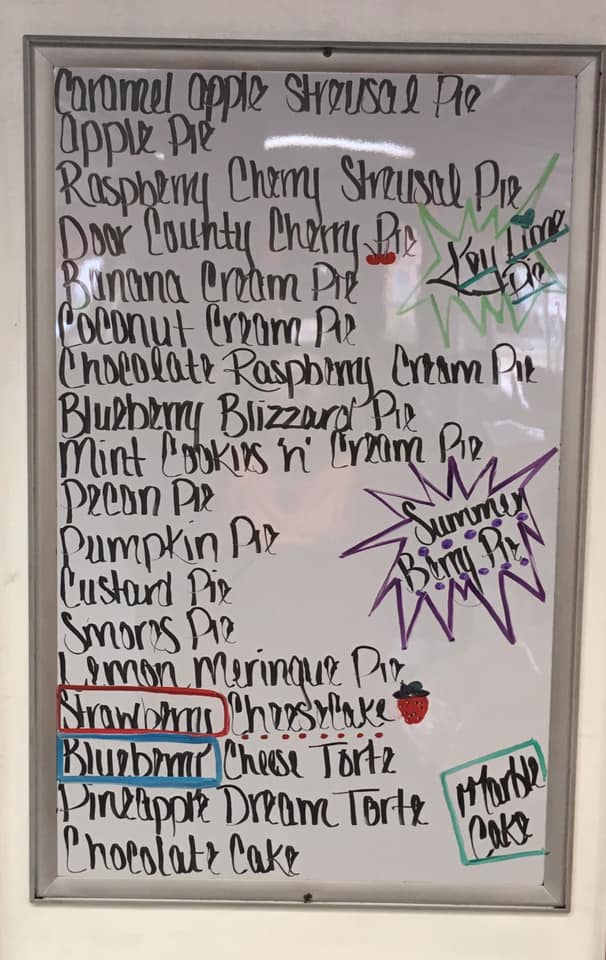 Caramel Apple Streusal Pie
Apple Pie
Raspberry Cherry Streusal Pie
Door County Cherry Pie
Key Lime
Pie
Banana Cream Pie
Coconut Cream Pie
Chocolate Raspberry Cream Pie
Blueberry Blizzard Pie
Mint Cookies 'n' Cream Pie
Pecan Pie
Summer
Berry Pie
Pumpkin Pie
Custard Pie
Smores Pie
Lemon Meringue Pie
Strawberry CheeseCake
Blueberry Cheese Torte
Pineapple Dream Torte
Chocolate Cake
Marble
Cake